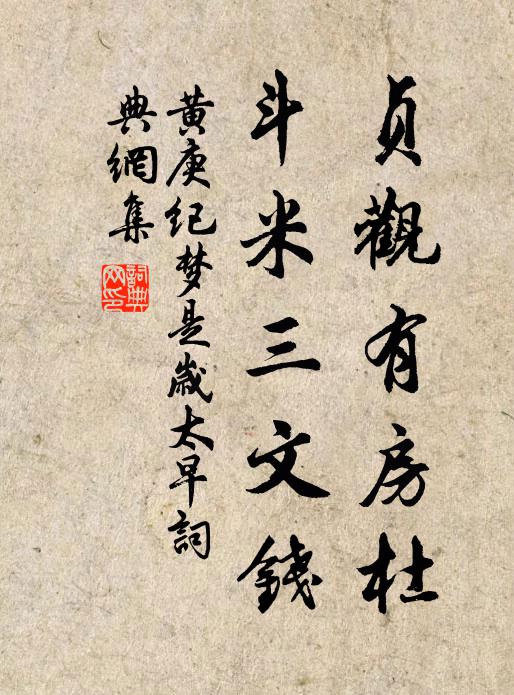 貞觀有房杜
斗米三文錢
黃庚纪梦是歲太早詞
典網集
詞典
网印